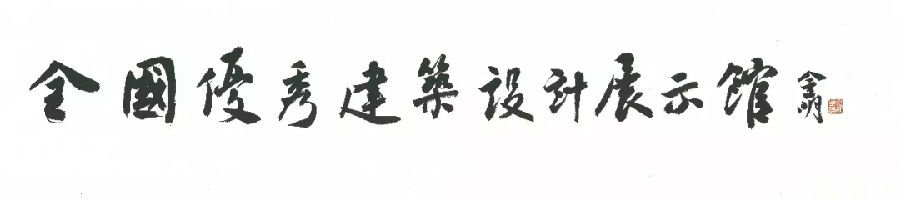 全國優秀建築設計展示館